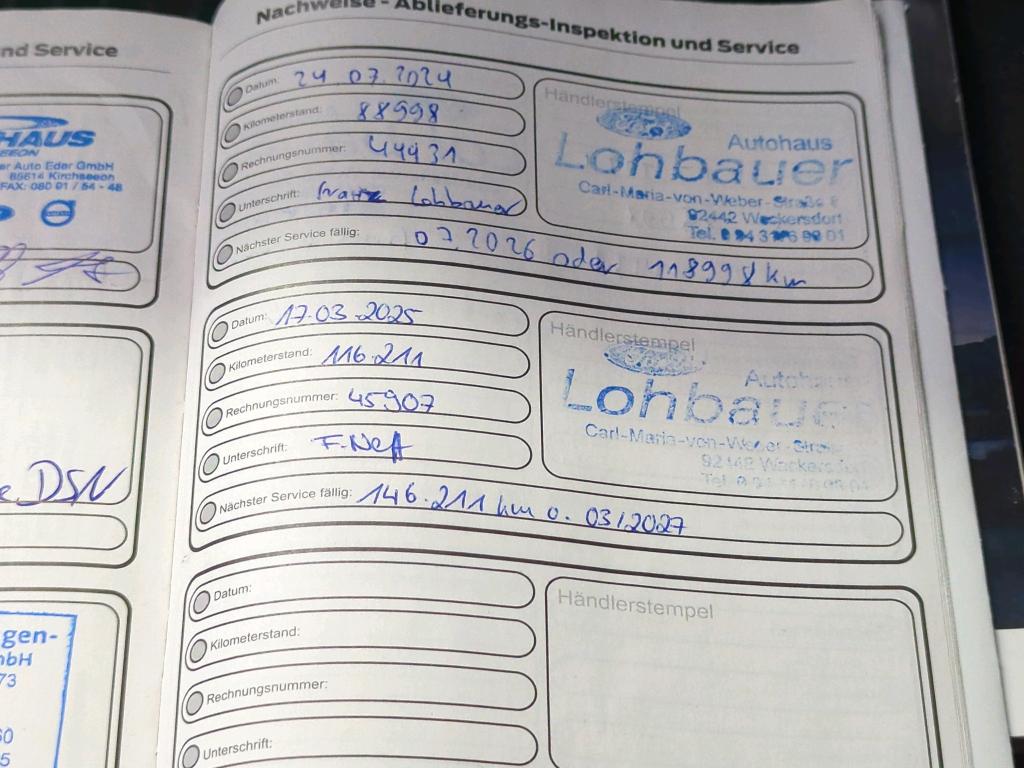 nd Service
HAUS
SEEON
er Auto Eder GmbH
85614 Kirchseeon
FAX: 080 91 / 54 - 48
DSN
gen-
nbH
73
60
5
Nachweise - Ablieferungs-Inspektion und Service
Datum: 24 07.2024
Kilometerstand: 88998
Rechnungsnummer: 44931
Unterschrift: Lohbauer
Nächster Service fällig: 07.2026 oder 118998 km
Händlerstempel
Autohaus
Lohbauer
Carl-Maria-von-Weber-Straße
92442 Wackersdorf
Tel.
Datum: 17.03.2025
Kilometerstand: 116.211
Rechnungsnummer: 45907
Unterschrift: F. Neft
Nächster Service fällig: 146.211 km o. 03/2027
Händlerstempel
Autohaus
Lohbauer
Carl-Maria-von-Weber-Straße
92442 Wackersdorf
Tel.
Datum:
Kilometerstand:
Rechnungsnummer:
Unterschrift:
Händlerstempel